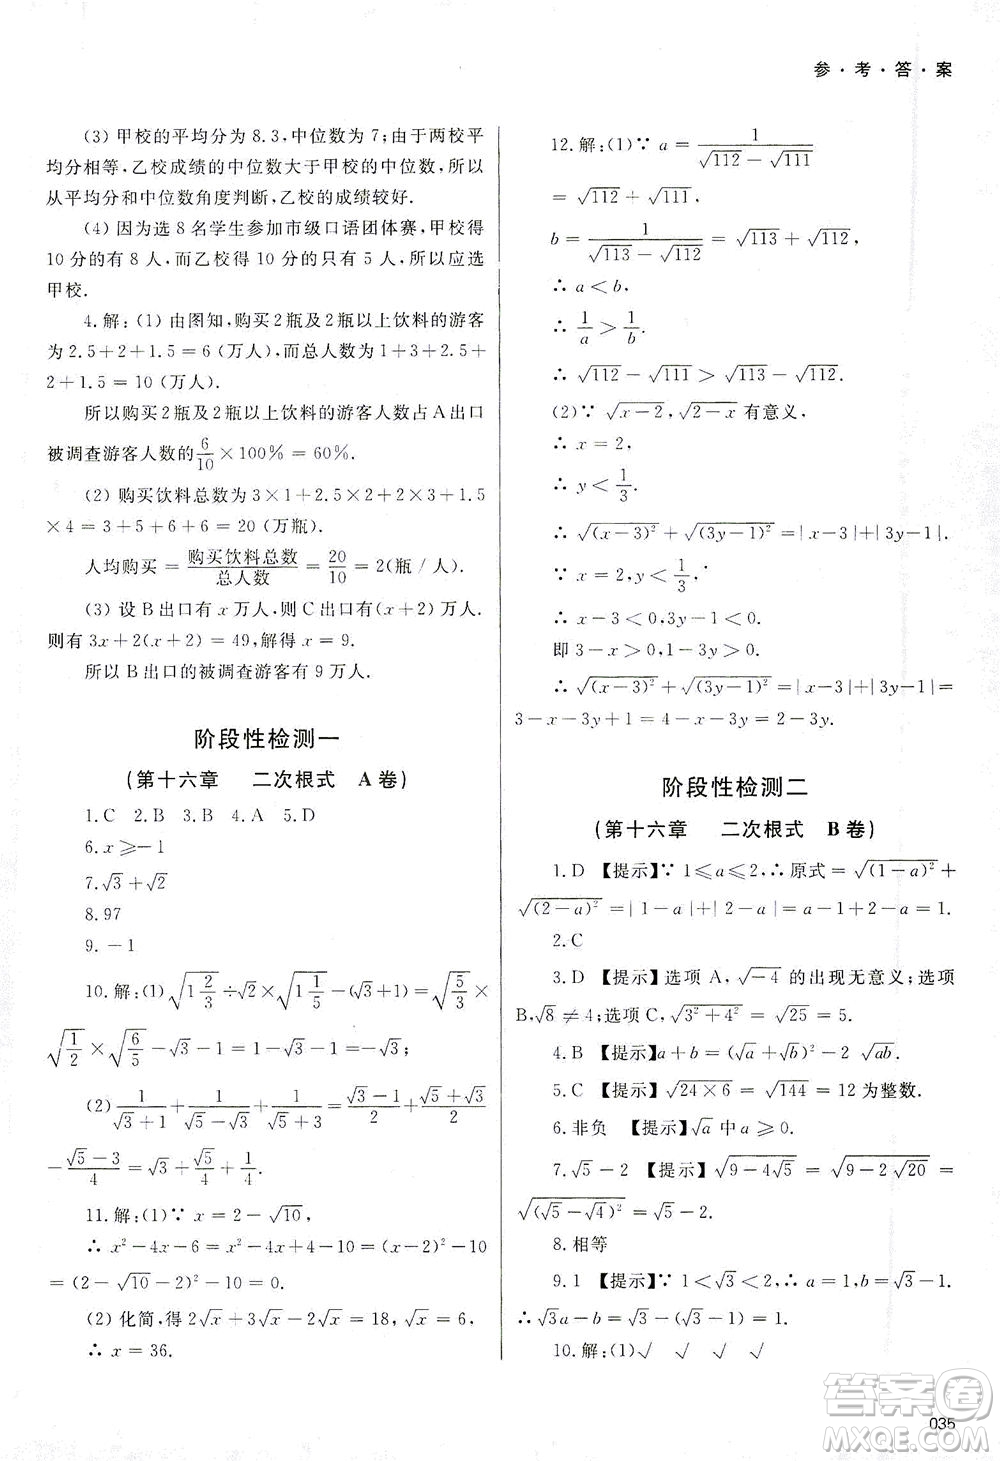 参·考·答·案
(3) 甲校的平均分为 8.3,中位数为 7;由于两校平
均分相等,乙校成绩的中位数大于甲校的中位数,所以
从平均分和中位数角度判断,乙校的成绩较好.
(4) 因为选 8 名学生参加市级口语团体赛,甲校得
10 分的有 8 人,而乙校得 10 分的只有 5 人,所以应选
甲校.
4.解:(1) 由图知,购买2瓶及2瓶以上饮料的游客
为 2.5+2+1.5=6(万人),而总人数为 1+3+2.5
+2+1.5=10(万人).
所以购买2瓶及2瓶以上饮料的游客人数占A出口
被调查游客人数的 6/10 ×100%=60%.
(2) 购买饮料总数为 3×1+2.5×2+2×3+1.5
×4=3+5+6+6=20(万瓶).
人均购买=购买饮料总数/总人数=20/10=2(瓶/人).
(3) 设 B 出口有 x 万人,则 C 出口有(x+2)万人.
则有 3x+2(x+2)=49,解得 x=9.
所以 B 出口的被调查游客有 9 万人.
阶段性检测一
(第十六章 二次根式 A卷)
1.C 2.B 3.B 4.A 5.D
6.x⩾-1
7.√3+√2
8.97
9.-1
10.解:(1)√(1 2/3)÷√2×√(1 1/5)-(√3+1)=√(5/3)×
√(1/2)×√(6/5)-√3-1=-√3;
(2) 1/(√3+1)+1/(√5-√3)+1/4=(√3-1)/2+(√5+√3)/2
-(√5-3)/4=√3+√5/4+1/4.
11.解:(1)∵ x=2-√10,
∴ x²-4x-6=x²-4x+4-10=(x-2)²-10
=(2-√10-2)²-10=0.
(2) 化简,得 2√x+3√x-2√x=18,√x=6.
∴ x=36.
12.解:(1)∵ a=1/(√112-√111)
=√112+√111,
b=1/(√113-√111)=√113+√112,
∴ a<b.
∴ 1/a>1/b.
∴ √112-√111>√113-√112.
(2)∵ √(x-2),√(2-x) 有意义,
∴ x=2,
∴ y<1/3.
∴ √(x-3)²+√(3y-1)²=|x-3|+|3y-1|.
∵ x=2,y<1/3,
∴ x-3<0,3y-1<0.
即 3-x>0,1-3y>0.
∴ √(x-3)²+√(3y-1)²=|x-3|+|3y-1|=
3-x-3y+1=4-x-3y=4-2-3y=2-3y.
阶段性检测二
(第十六章 二次根式 B卷)
1.D 【提示】∵ 1⩽a⩽2,∴ 原式=√(1-a)²+
√(2-a)²=|1-a|+|2-a|=a-1+2-a=1.
2.C
3.D 【提示】选项 A,√-4 的出现无意义;选项
B,√8≠4;选项 C,√(3²+4²)=√25=5.
4.B 【提示】a+b=(√a+√b)²-2√ab.
5.C 【提示】√(24×6)=√144=12 为整数.
6.非负 【提示】√a 中 a⩾0.
7.√5-2 【提示】√(9-4√5)=√(9-2√20)
=√(√5-√4)²=√5-2.
8.相等
9.1 【提示】1<√3<2,∴ a=1,b=√3-1.
∴ √3a-b=√3-(√3-1)=1.
10.解:(1)√ √ √ √
答案卷
MXQE.COM
035